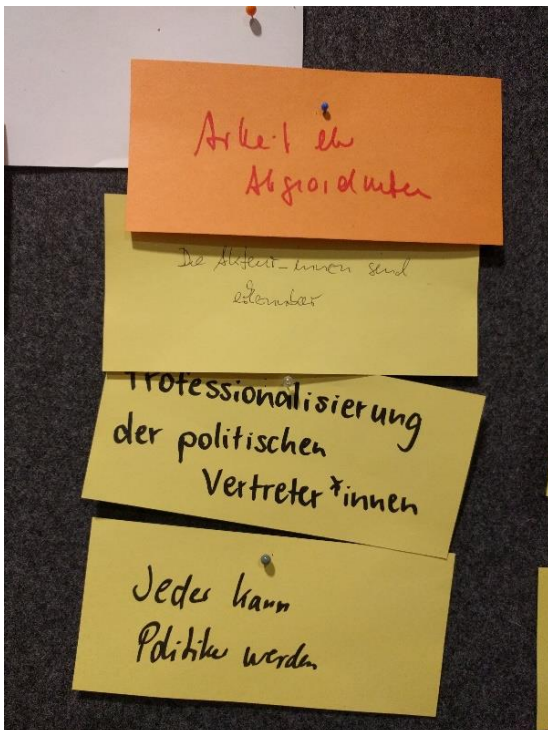 Arbeit der
Abgeordneten
Die Akteur_innen sind
erkennbar
Professionalisierung
der politischen
Vertreter*innen
Jeder kann
Politiker werden